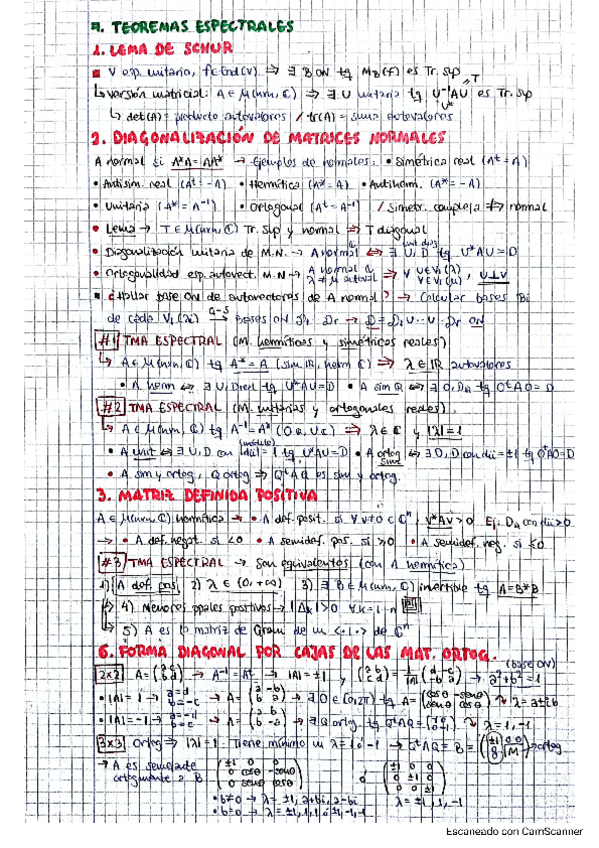 7. TEOREMAS ESPECTRALES
1. LEMA DE SCHUR
▪ V esp. unitario, f∈End(V) ⇒ ∃ B ON tq M_B(f) es Tr. Sup
↳ versión matricial: A∈M(n×n, ℂ) ⇒ ∃ U unitaria tq U⁻¹AU es Tr. Sup
U*
↳ det(A) = producto autovalores / tr(A) = suma autovalores
2. DIAGONALIZACIÓN DE MATRICES NORMALES
A normal si A*A = AA* → Ejemplos de normales: • Simétrica real (Aᵗ = A)
• Antisim. real (Aᵗ = -A) • Hermítica (A* = A) • Antiherm. (A* = -A)
• Unitaria (A* = A⁻¹) • Ortogonal (Aᵗ = A⁻¹) / Simetr. compleja ⇏ normal
• Lema → T∈M(n×n, ℂ) Tr. Sup y normal ⇒ T diagonal
• Diagonalización unitaria de M.N. → A normal ⇔ ∃ U, D tq U*AU = D
• Ortogonalidad esp. autovect. M.N → A normal λ≠μ autoval ⇒ ∀ u∈V₁(λ) ∀ v∈V₁(μ), u⊥v
▪ ¿Hallar base ON de autovectores de A normal? → Calcular bases Bi
de cada V₁(λ) G-S → bases ON D₁...Dr → D = D₁ ∪...∪ Dr ON
#1 TMA ESPECTRAL (M. hermíticas y simétricas reales)
↳ A∈M(n×n, ℂ) tq A* = A (sim ℝ, herm ℂ) ⇒ λ∈ℝ autovalores
• A herm ⇔ ∃ U, D real tq U*AU = D • A sim ℝ ⇔ ∃ O, Dℝ tq OᵗAO = D
#2 TMA ESPECTRAL (M. unitarias y ortogonales reales)
↳ A∈M(n×n, ℂ) tq A⁻¹ = A* (Oℝ, Uℂ) ⇒ λ∈ℂ y |λ| = 1
• A unit ⇔ ∃ U, D con |dii| = 1 (módulo) tq U*AU = D • A ortog sim ⇔ ∃ O, D con dii = ±1 tq OᵗAO = D
• A sim y ortog, Q ortog ⇒ QᵗAQ es sim y ortog.
3. MATRIZ DEFINIDA POSITIVA
A∈M(n×n, ℂ) hermítica → • A def. posit. si ∀ v≠0 ∈ ℂⁿ, v*Av > 0 Ej: Dℝ con dii > 0
→ • A def. negat. si < 0 • A semidef. pos. si ≥ 0 • A semidef. neg. si ≤ 0
#3 TMA ESPECTRAL → Son equivalentes (con A hermítica)
1) A def. pos 2) λ∈(0, +∞) 3) ∃ B∈M(n×n, ℂ) invertible tq A = B*B
4) Menores ppales positivos → |Δk| > 0 ∀ k = 1...n
5) A es la matriz de Gram de un <·,·> de ℂⁿ
6. FORMA DIAGONAL POR CAJAS DE LAS MAT. ORTOG.
(base ON)
2x2 A = (a c / b d) → A⁻¹ = Aᵗ → |A| = ±1 y (a b / c d) = 1/|A| (d -c / -b a) → a²+b² = 1
• |A| = 1 → a = d, b = -c → A = (a -b / b a) → ∃ θ∈[0, 2π) tq A = (cosθ -senθ / senθ cosθ) ↷ λ = a±ib
• |A| = -1 → a = -d, b = c → A = (a b / b -a) → ∃ Q ortog. tq QᵗAQ = (1 0 / 0 -1) ↷ λ = 1, -1
3x3 Ortog ⇒ |A| = ±1. Tiene mínimo un λ = 1 o -1 → QᵗAQ = B = (±1 0 0 / 0 / 0 M) → ortog
→ A es semejante ortogmente a B (±1 0 0 / 0 cosθ -senθ / 0 senθ cosθ) ó (±1 0 0 / 0 ±1 0 / 0 0 -1)
• b≠0 → λ = ±1, a+bi, a-bi λ = ±1, 1, -1
• b=0 → λ = ±1, 1, 1 ó ±1, -1, -1
Escaneado con CamScanner